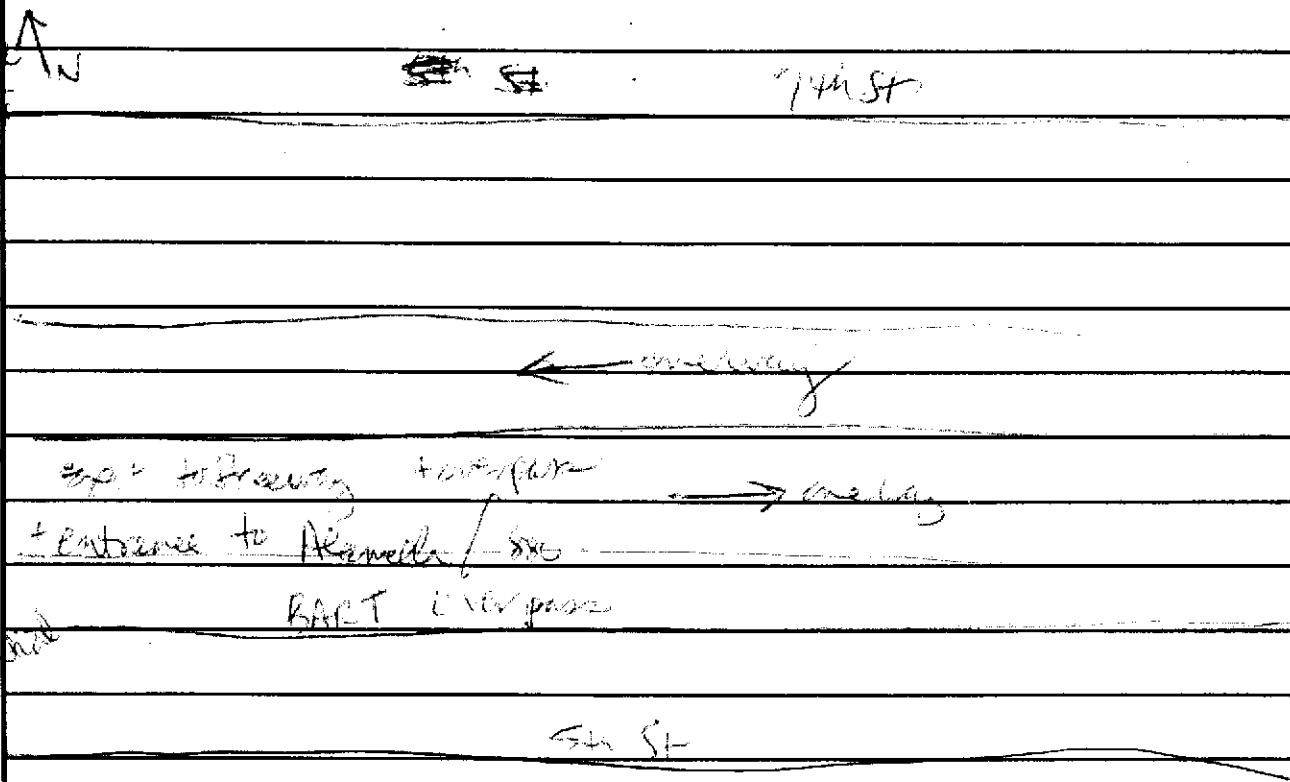 N
7th St
one way
to freeway + overpass
one way
+ entrance to Alameda /
BART overpass
5th St